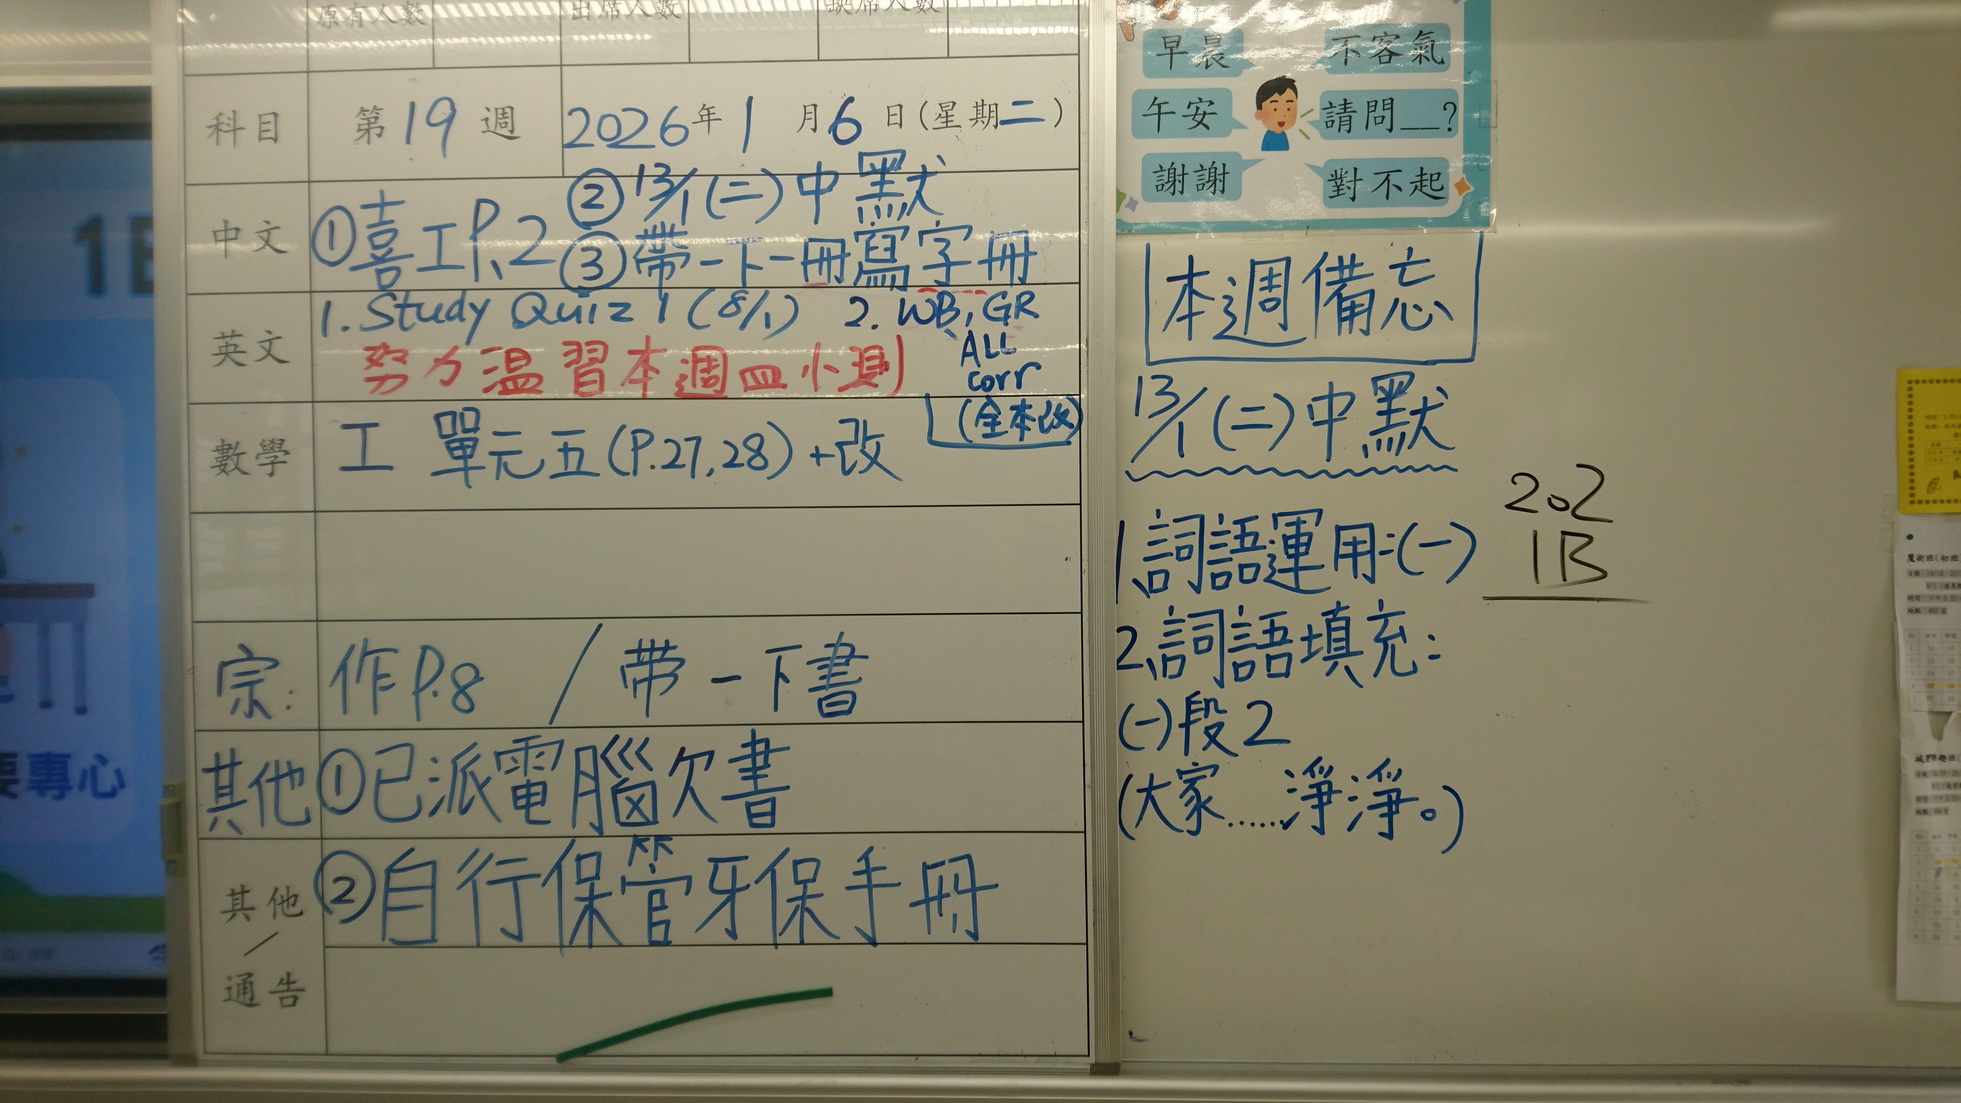 原有人數 出席人數 缺席人數
科目 第19週 2026年1月6日(星期二)
中文 ①喜工P.2 ②13/1(二)中默
③帶一下一冊寫字冊
英文 1. Study Quiz 1 (8/1) 2. WB, GR
ALL
corr
(全本改)
努力溫習本週四小測
數學 工 單元五(P.27,28)+改
宗: 作P.8 / 帶一下書
其他 ①已派電腦欠書
其他/通告 ②自行保管牙保手冊
早晨 不客氣
午安 請問__?
謝謝 對不起
本週備忘
13/1(二)中默
1.詞語運用:(一)
2.詞語填充:
(一)段2
(大家......淨淨。)
202
1B
專心